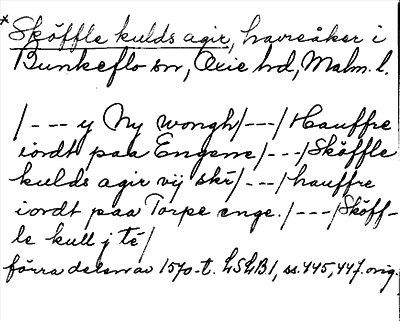 * Sköffle kulds agir, havreåker i
Bunkeflo sn, Oxie hd, Malm. l.
/--- y Ny wongh/---/Hauffre
iordt paa Engene/---/Sköffle
kulds agir vij skr/---/hauffre
iordt paa Torpe enge./---/Sköff-
le kull j té/
förra delen av 1570-t. LSLB1, ss. 445, 447. orig.